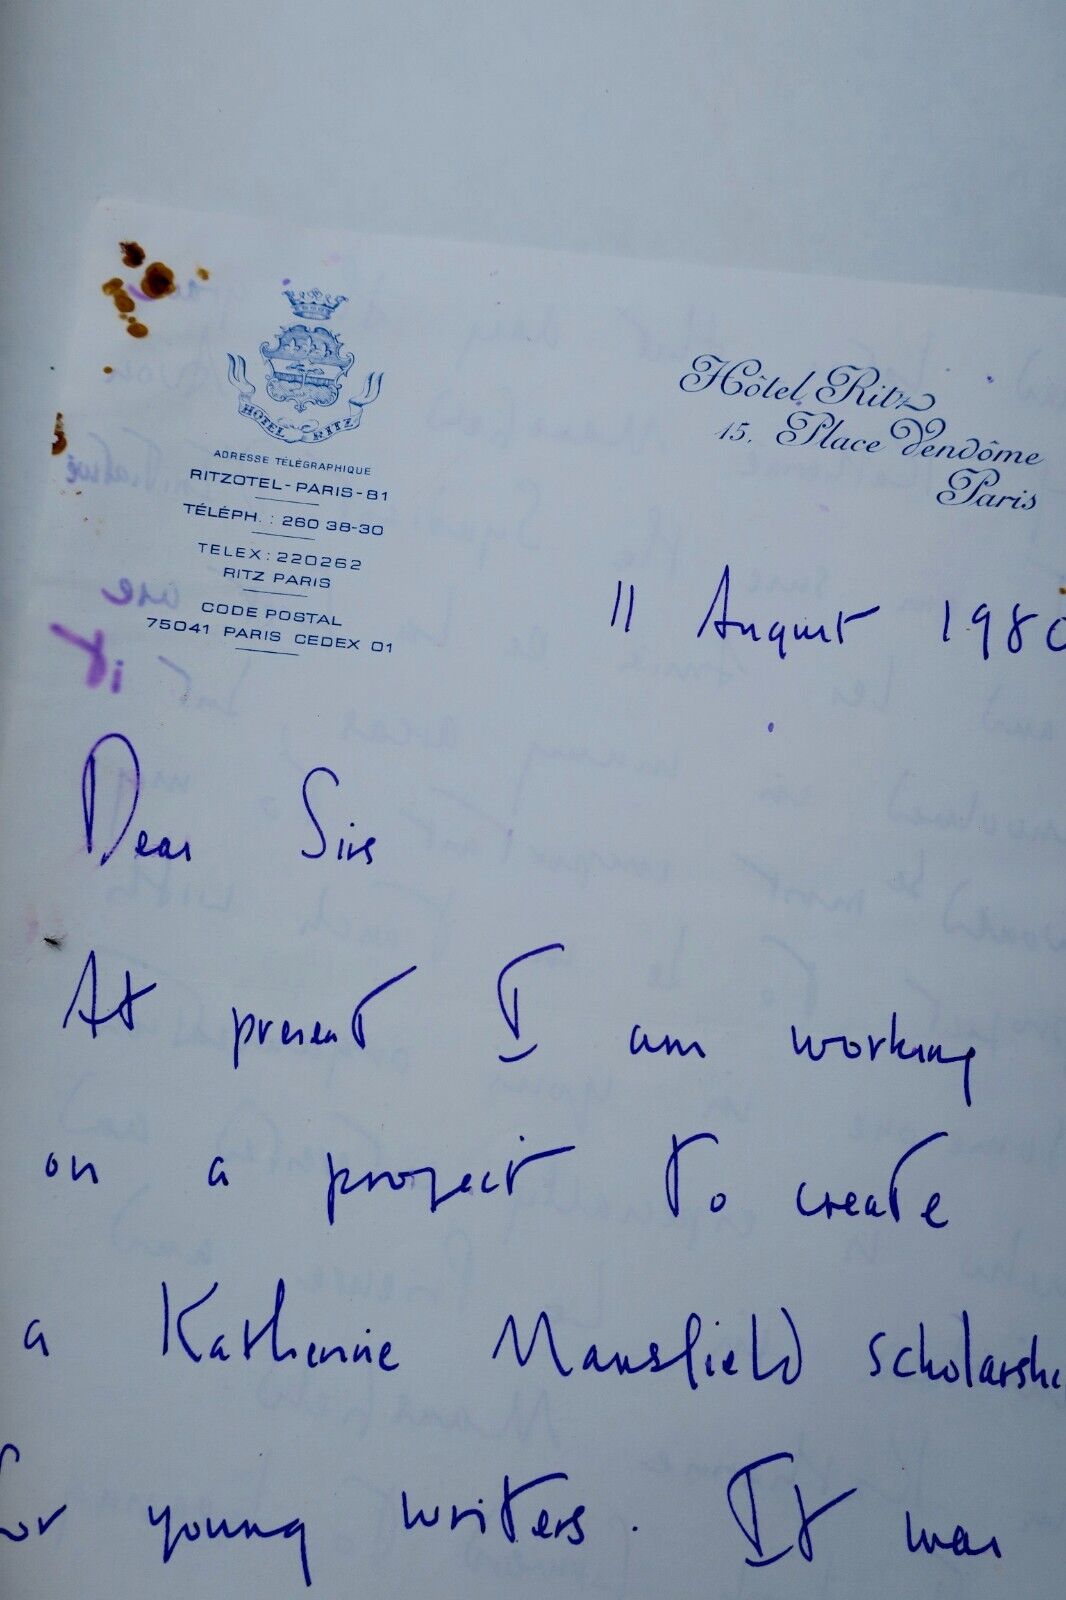 HÔTEL RITZ
ADRESSE TÉLÉGRAPHIQUE
RITZOTEL-PARIS-81
TÉLÉPH. : 260 38-30
TELEX: 220262
RITZ PARIS
CODE POSTAL
75041 PARIS CEDEX 01
Hôtel Ritz
15, Place Vendôme
Paris
11 August 1980
Dear Sirs
At present I am working
on a project to create
a Katherine Mansfield scholarshi
for young writers. It was